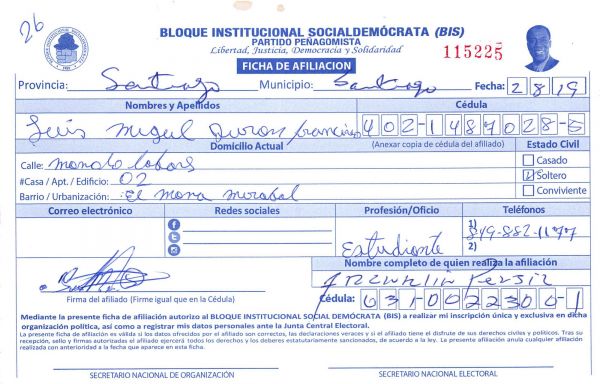 26
BLOQUE INSTITUCIONAL SOCIALDEMÓCRATA (BIS)
PARTIDO PEÑAGOMISTA
Libertad, Justicia, Democracia y Solidaridad
115225
FICHA DE AFILIACION
Provincia: Santiago Municipio: Santiago Fecha: 2 8 19
Nombres y Apellidos Cédula
Luis Miguel Duron francisco 402-1487028-5
Domicilio Actual (Anexar copia de cédula del afiliado) Estado Civil
Calle: Casado
#Casa / Apt. / Edificio: 02 Soltero
Barrio / Urbanización: El Mirabal Conviviente
Correo electrónico Redes sociales Profesión/Oficio Teléfonos
1) 849-882-1177
Estudiante 2)
Nombre completo de quien realiza la afiliación
Franklin
Firma del afiliado (Firme igual que en la Cédula) Cédula: 031-0022300-1
Mediante la presente ficha de afiliación autorizo al BLOQUE INSTITUCIONAL SOCIAL DEMÓCRATA (BIS) a realizar mi inscripción única y exclusiva en dicha
organización política, así como a registrar mis datos personales ante la Junta Central Electoral.
La presente ficha de afiliación es válida si los datos ofrecidos por el afiliado son correctos, las declaraciones veraces y si el afiliado tiene el disfrute de sus derechos civiles y políticos. Tras su
recepción, sello y firmas autorizadas el afiliado ejercerá todos los derechos y los deberes estatutariamente sancionados, de acuerdo a la ley. La Presente afiliación anula cualquier afiliación
realizada con anterioridad a la fecha que aparece en esta ficha.
SECRETARIO NACIONAL DE ORGANIZACIÓN SECRETARIO NACIONAL ELECTORAL